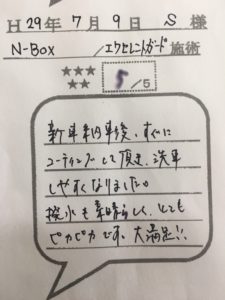 H 29年 7月 9日 S 様
N-Box /エクセレントガード 施術
★★★
★★ 5/5
新車納車後、すぐに
コーティングして頂き、洗車
しやすくなりました。
撥水も素晴らしく、とても
ピカピカです。大満足!!